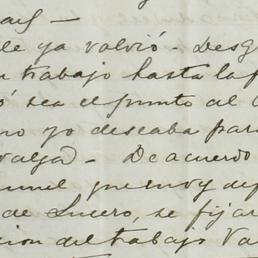 le ya volvió - Desg
trabajo hasta la p
ó sea el punto al
no yo deseaba para
valga - De acuerdo
de Lucero, se fijar
cion del trabajo Va